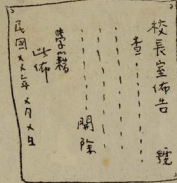 校長室佈告 號
查
開除
學籍
此佈
民國××年×月×日